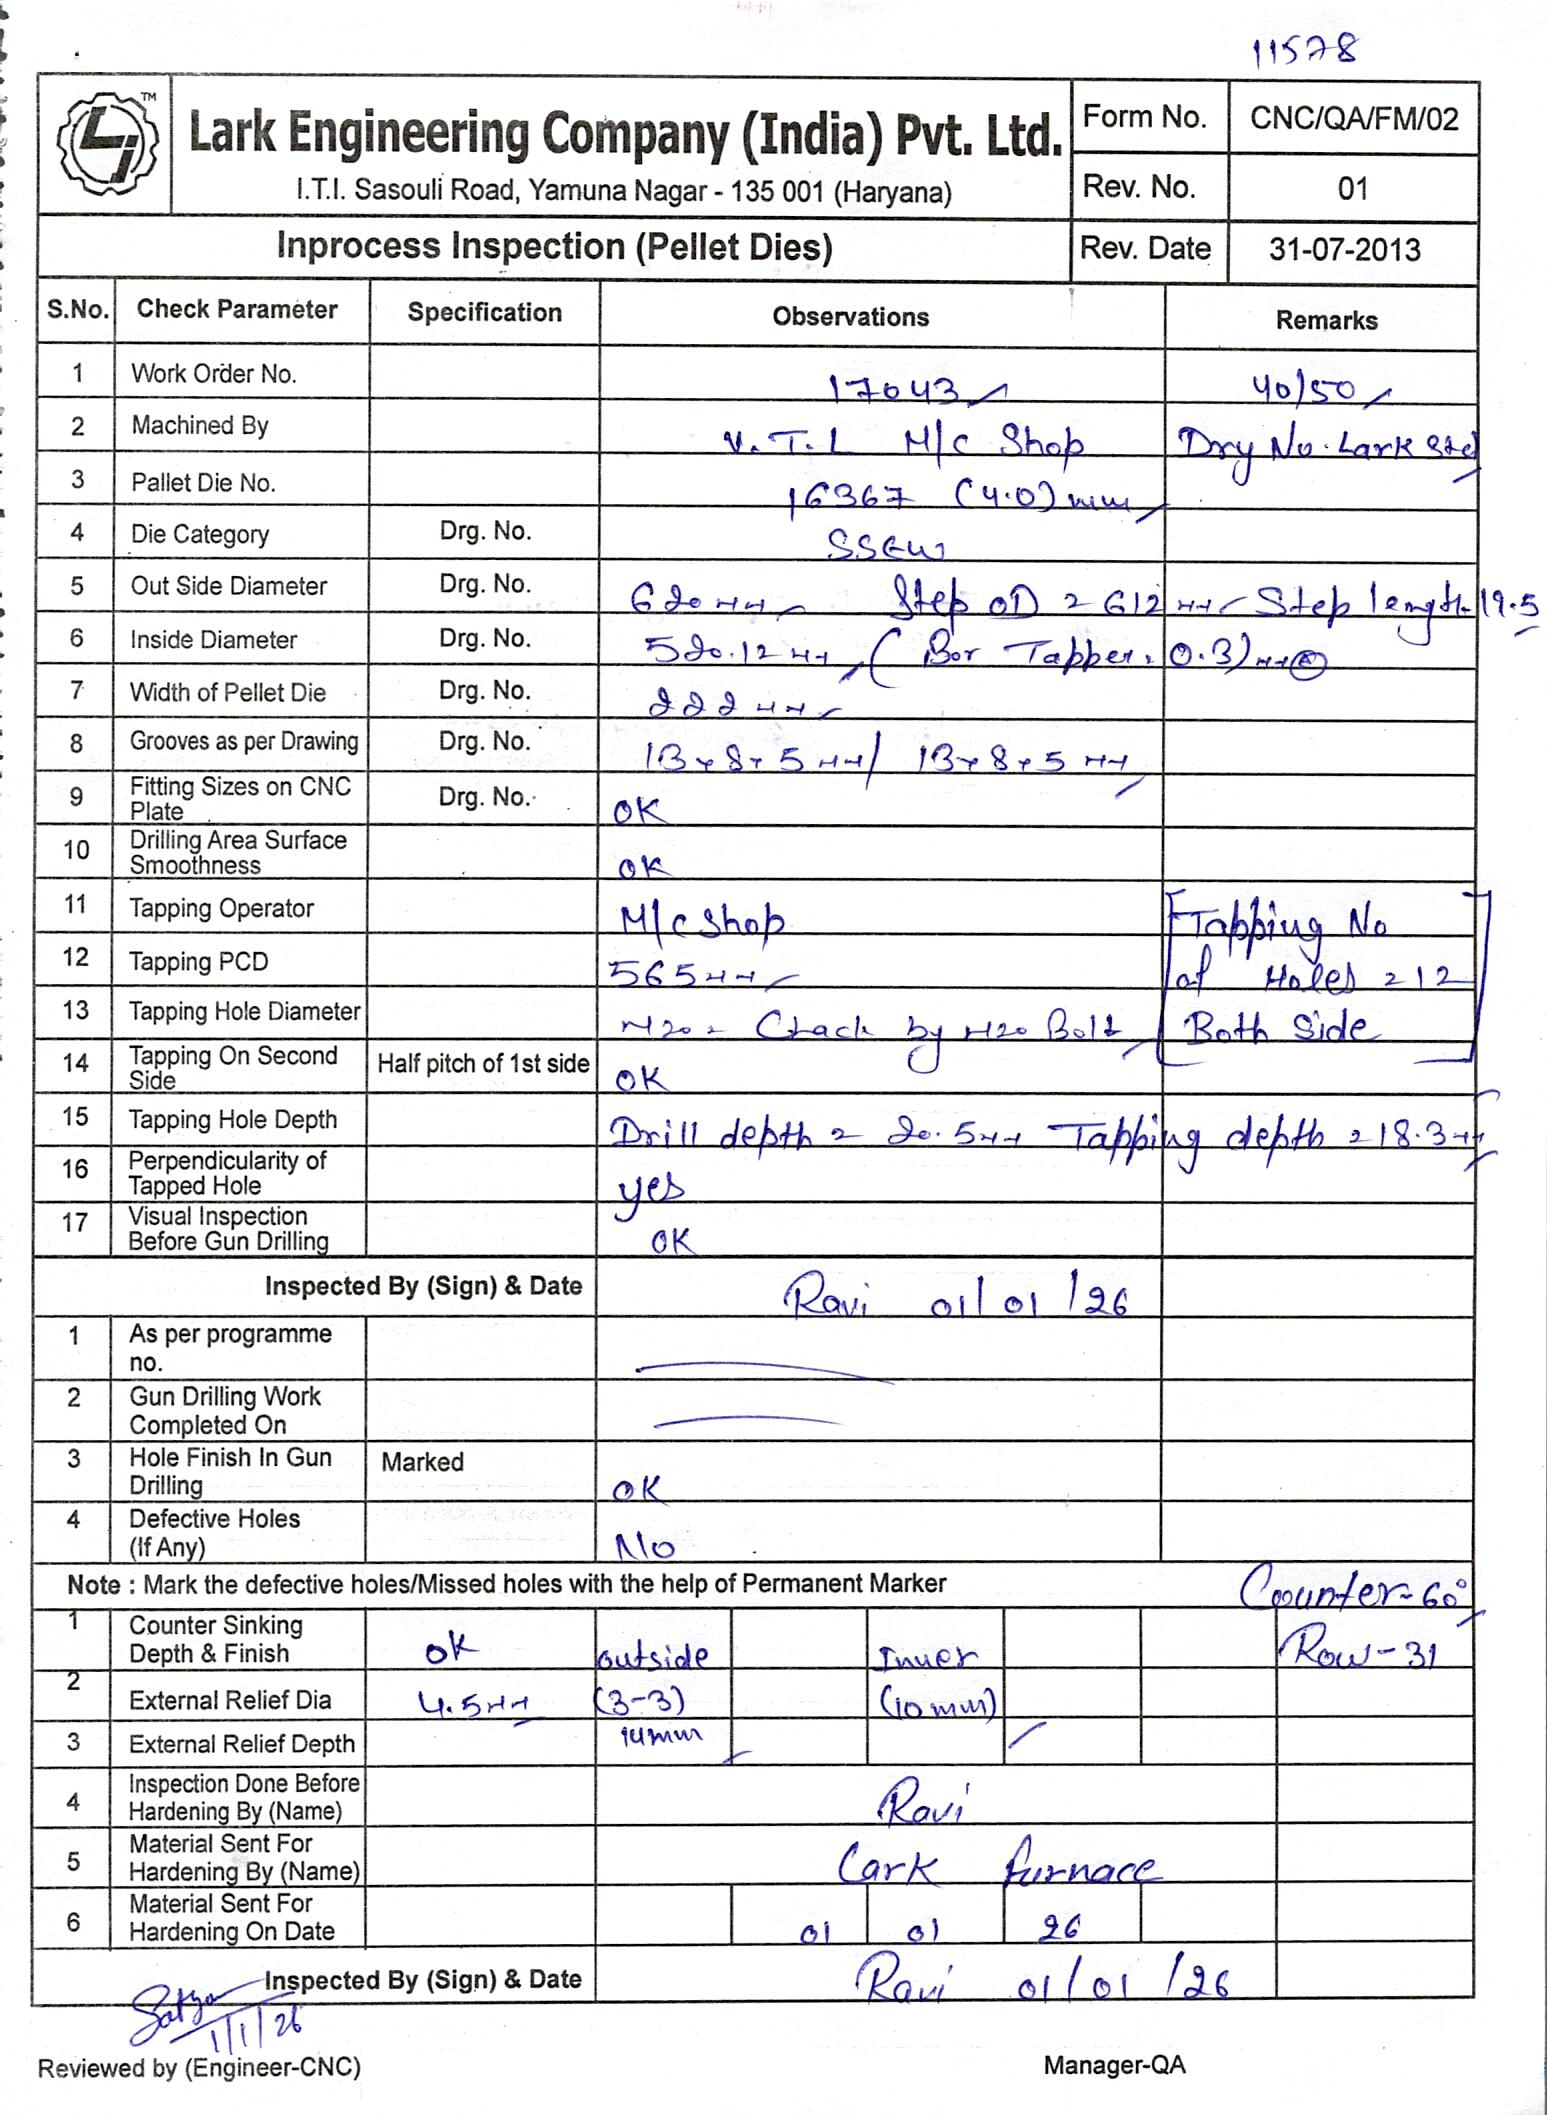 11578
TM
Lark Engineering Company (India) Pvt. Ltd.
I.T.I. Sasouli Road, Yamuna Nagar - 135 001 (Haryana)
Form No. CNC/QA/FM/02
Rev. No. 01
Inprocess Inspection (Pellet Dies) Rev. Date 31-07-2013
S.No. Check Parameter Specification Observations Remarks
1 Work Order No. 17043 40/50
2 Machined By V.T.L M/c Shop Drg No. Lark Std
3 Pallet Die No. 16367 (4.0) mm
4 Die Category Drg. No. SSEW
5 Out Side Diameter Drg. No. 620 mm Step OD = 612 mm Step length-19.5
6 Inside Diameter Drg. No. 520.12 mm (Bor Tapper = 0.3) mm
7 Width of Pellet Die Drg. No. 222 mm
8 Grooves as per Drawing Drg. No. 13x8x5 mm/ 13x8x5 mm
9 Fitting Sizes on CNC Plate Drg. No. OK
10 Drilling Area Surface Smoothness OK
11 Tapping Operator M/c Shop Tapping No
12 Tapping PCD 565 mm of Holes = 12
13 Tapping Hole Diameter M20 = Chack by M20 Bolt Both Side
14 Tapping On Second Side Half pitch of 1st side OK
15 Tapping Hole Depth Drill depth = 20.5 mm Tapping depth = 18.3 mm
16 Perpendicularity of Tapped Hole yes
17 Visual Inspection Before Gun Drilling OK
Inspected By (Sign) & Date Ravi 01/01/26
1 As per programme no.
2 Gun Drilling Work Completed On
3 Hole Finish In Gun Drilling Marked OK
4 Defective Holes (If Any) No
Note : Mark the defective holes/Missed holes with the help of Permanent Marker Counter-60°
1 Counter Sinking Depth & Finish OK outside Inner Row-31
2 External Relief Dia 4.5 mm (3-3) (10 mm)
3 External Relief Depth 14mm
4 Inspection Done Before Hardening By (Name) Ravi
5 Material Sent For Hardening By (Name) Lark furnace
6 Material Sent For Hardening On Date 01 01 26
Inspected By (Sign) & Date Ravi 01/01/26
Satya
1/1/26
Reviewed by (Engineer-CNC) Manager-QA